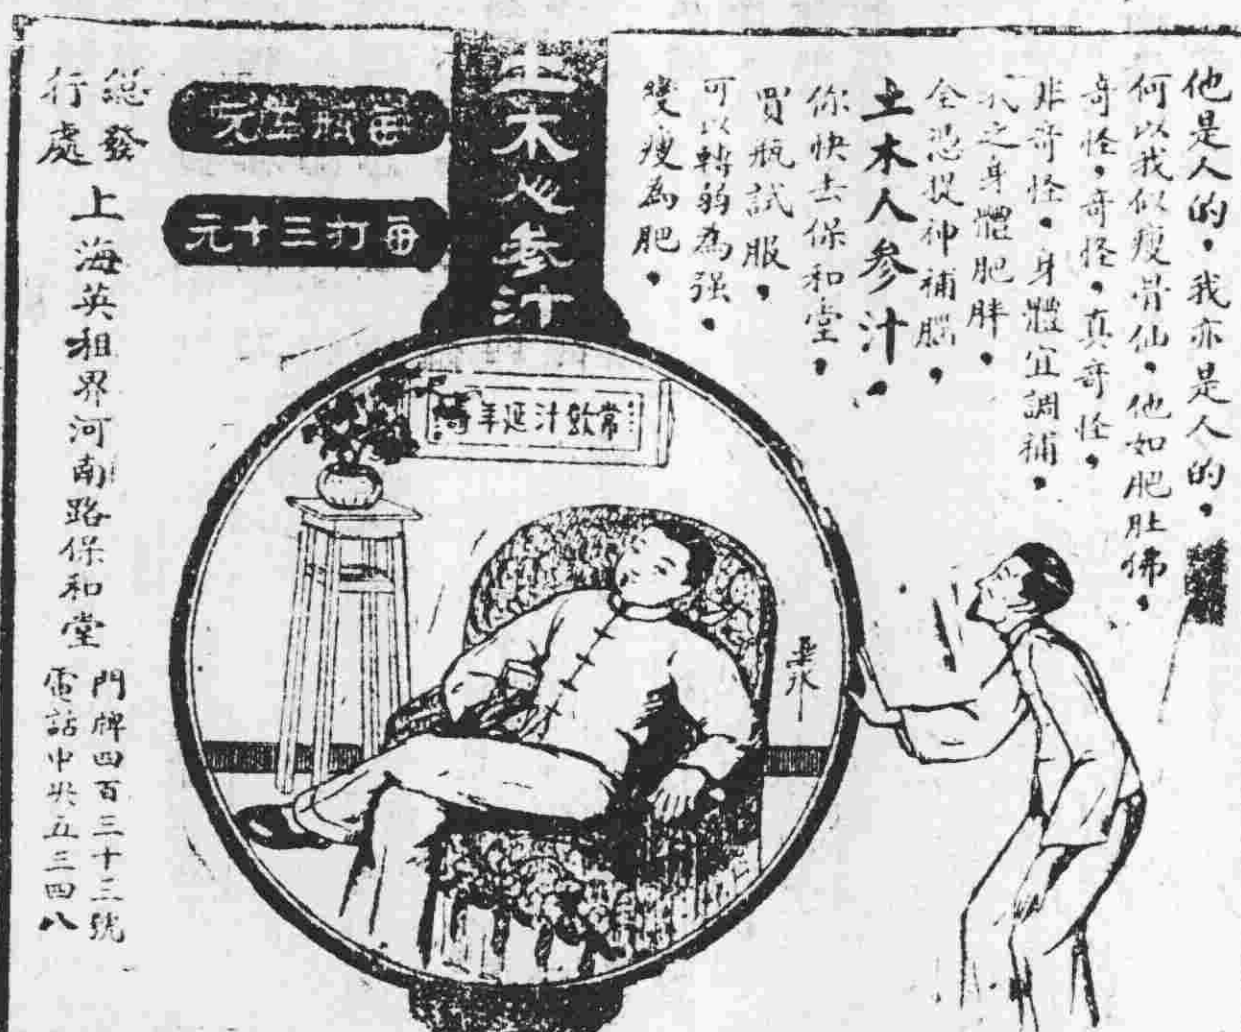 他是人的，我亦是人的，
何以我似瘦骨仙，他如肥肚佛，
奇怪，奇怪，真奇怪，
非奇怪，身體宜調補，
之身體肥胖，
全憑提神補腦，
土木人參汁，
你快去保和堂，
買瓶試服，
可以轉弱為强，
變瘦為肥，
土木人參汁
每瓶叁元
每打三十元
常飲汁延年
總發行處
上海英租界河南路保和堂
門牌四百三十三號
電話中央五三四八